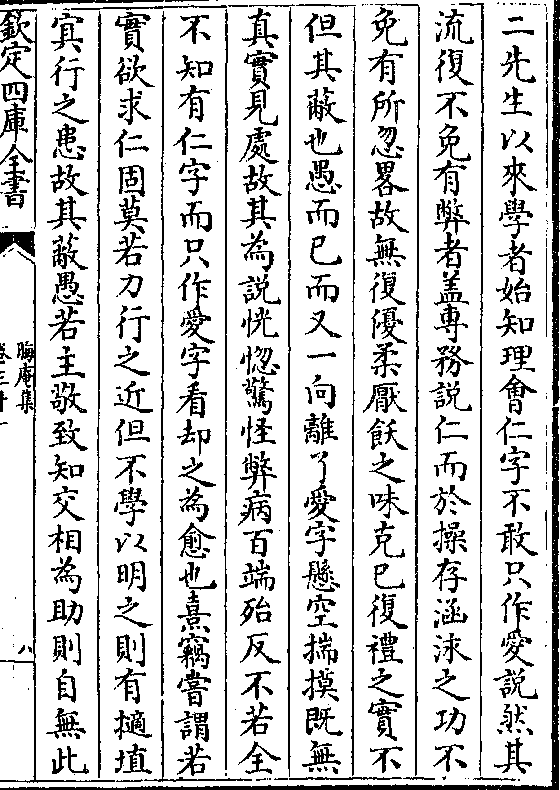 二先生以來學者始知理會仁字不敢只作愛說然其
流復不免有弊者盖專務說仁而於操存涵泳之功不
免有所忽畧故無復優柔厭飫之味克已復禮之實不
但其蔽也愚而已而又一向離了愛字懸空揣摸既無
真實見處故其為說恍惚驚怪弊病百端殆反不若全
不知有仁字而只作愛字看却之為愈也熹竊嘗謂若
實欲求仁固莫若力行之近但不學以明之則有擿埴
寘行之患故其蔽愚若主敬致知交相為助則自無此
欽定四庫全書
晦庵集
卷三十一
八